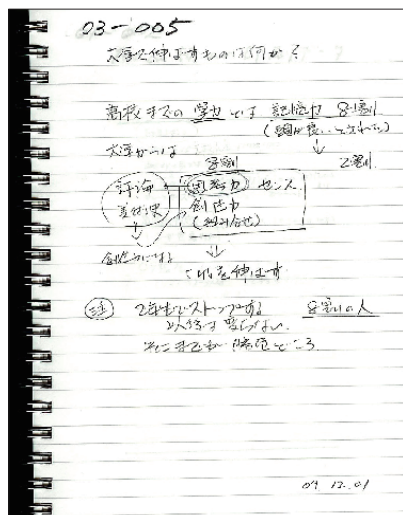 03-005
大学で伸ばすものは何か?
高校までの学力とは 記憶力 8割
(頭が良いとされた)
大学からは 2割
8割
討論 思考力 センス
創造力
(組み合せ)
これを伸ばす
注 2年生でストップする 8割の人
以後は変らない
そこまでが勝負どころ
09.12.01